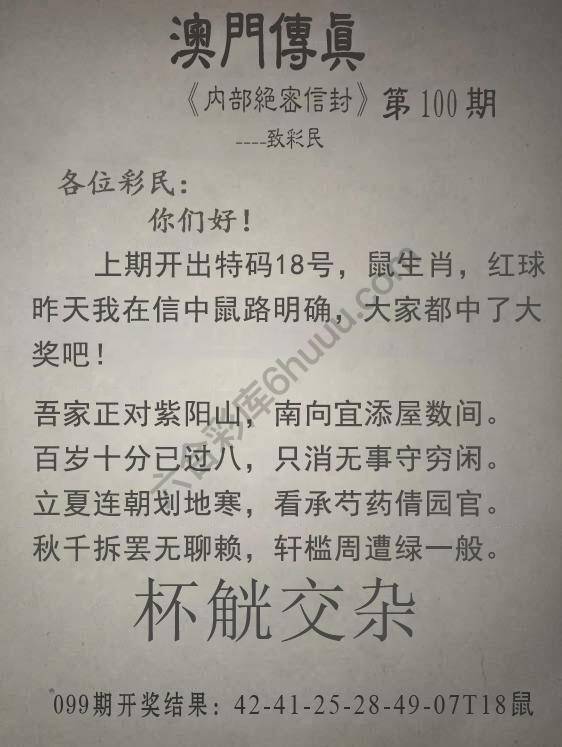 澳門傳真
《内部絕密信封》第100期
----致彩民
各位彩民：
你们好！
上期开出特码18号，鼠生肖，红球
昨天我在信中鼠路明确，大家都中了大
奖吧！
吾家正对紫阳山，南向宜添屋数间。
百岁十分已过八，只消无事守穷闲。
立夏连朝划地寒，看承芍药倩园官。
秋千拆罢无聊赖，轩槛周遭绿一般。
杯觥交杂
099期开奖结果：42-41-25-28-49-07T18鼠
六合彩库6huuu.com